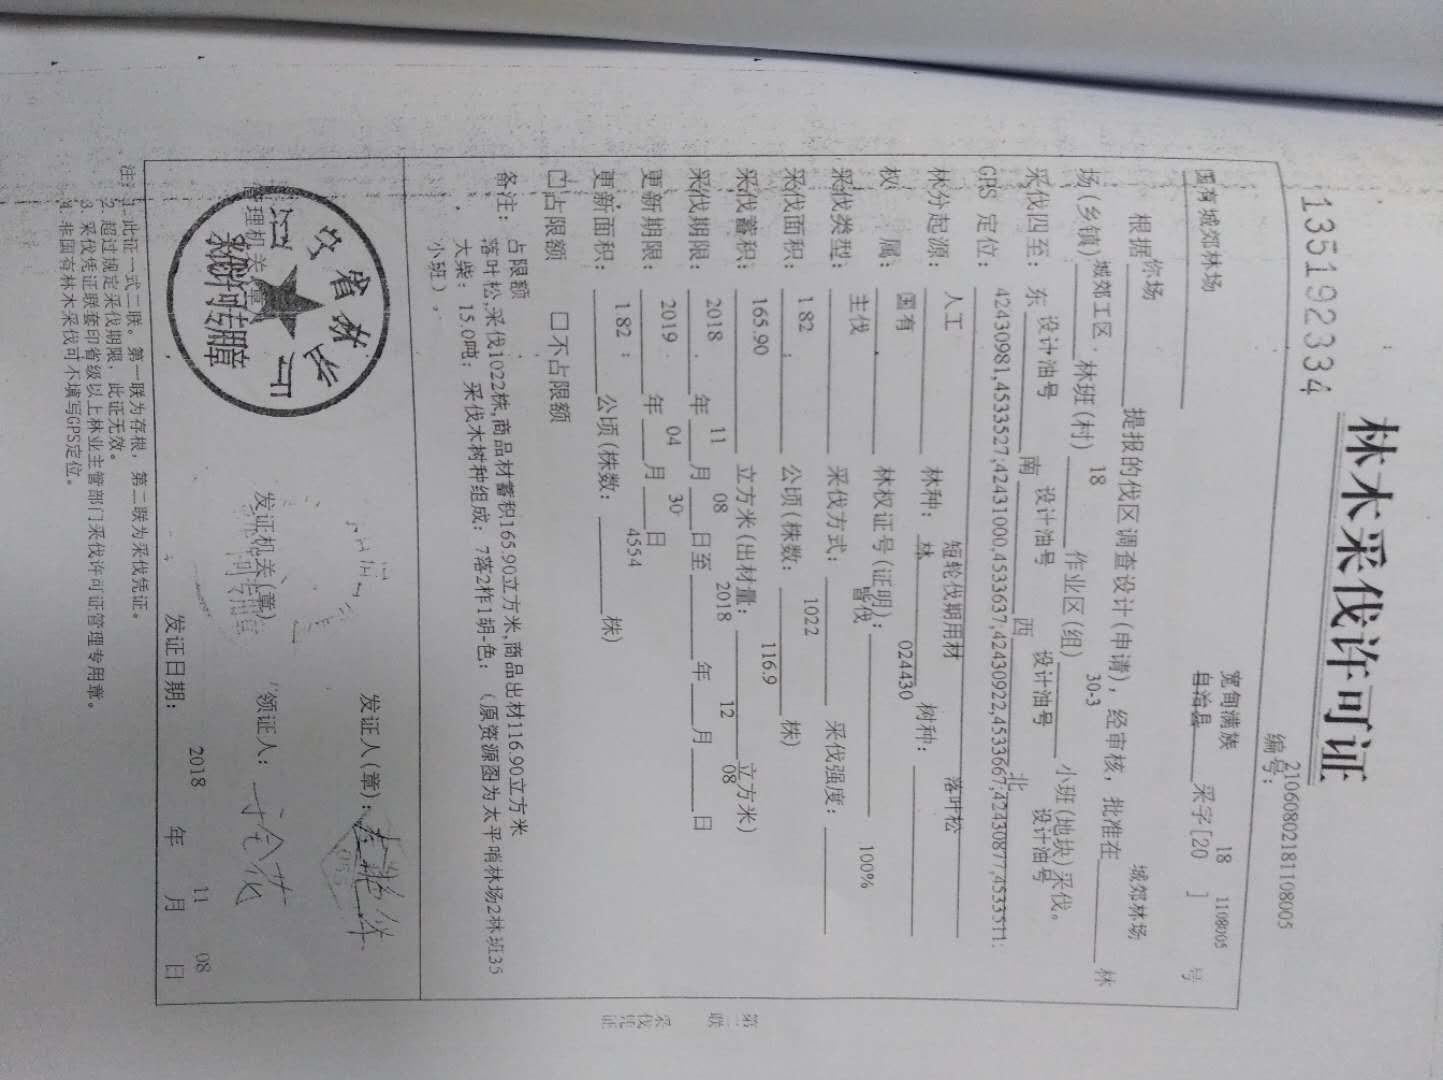 林木采伐许可证
135192334
编号: 21060802181108005
国有城郊林场 宽甸满族自治县 采字[2018] 1108005 号
根据你场提报的伐区调查设计(申请), 经审核, 批准在城郊林场林
场(乡镇)城郊工区.林班(村) 18 作业区(组) 30-3 小班(地块)采伐。
采伐四至: 东 设计油号 南 设计油号 西 设计油号 北 设计油号
GPS 定位: 42430981,4533527;42431000,4533637;42430922,4533667;42430877,4533511.
林分起源: 人工 林种: 短轮伐期用材林 树种: 落叶松
权属: 国有 林权证号(证明): 024430
采伐类型: 主伐 采伐方式: 皆伐 采伐强度: 100%
采伐面积: 1 82 公顷(株数: 1022 株)
采伐蓄积: 165.90 立方米(出材量: 116.9 立方米)
采伐期限: 2018 年 11 月 08 日至 2018 年 12 月 08 日
更新期限: 2019 年 04 月 30 日
更新面积: 1 82 公顷(株数: 4554 株)
□占限额 □不占限额
备注: 占限额
落叶松,采伐1022株,商品材蓄积165.90立方米,商品出材116.90立方米
大柴: 15.0吨; 采伐木树种组成: 7落2柞1胡-色; (原资源图为太平哨林场2林班35
小班)。
第二联 采伐凭证
辽宁省林业厅
采伐许可专用章
管理机关(章)
发证机关(章)
可专用章
发证人(章):
055
领证人: 于全花
发证日期: 2018 年 11 月 08 日
注: 1. 此证一式二联。第一联为存根, 第二联为采伐凭证。
2. 超过规定采伐期限, 此证无效。
3. 采伐凭证联套印省级以上林业主管部门采伐许可证管理专用章。
4. 非国有林木采伐可不填写GPS定位。